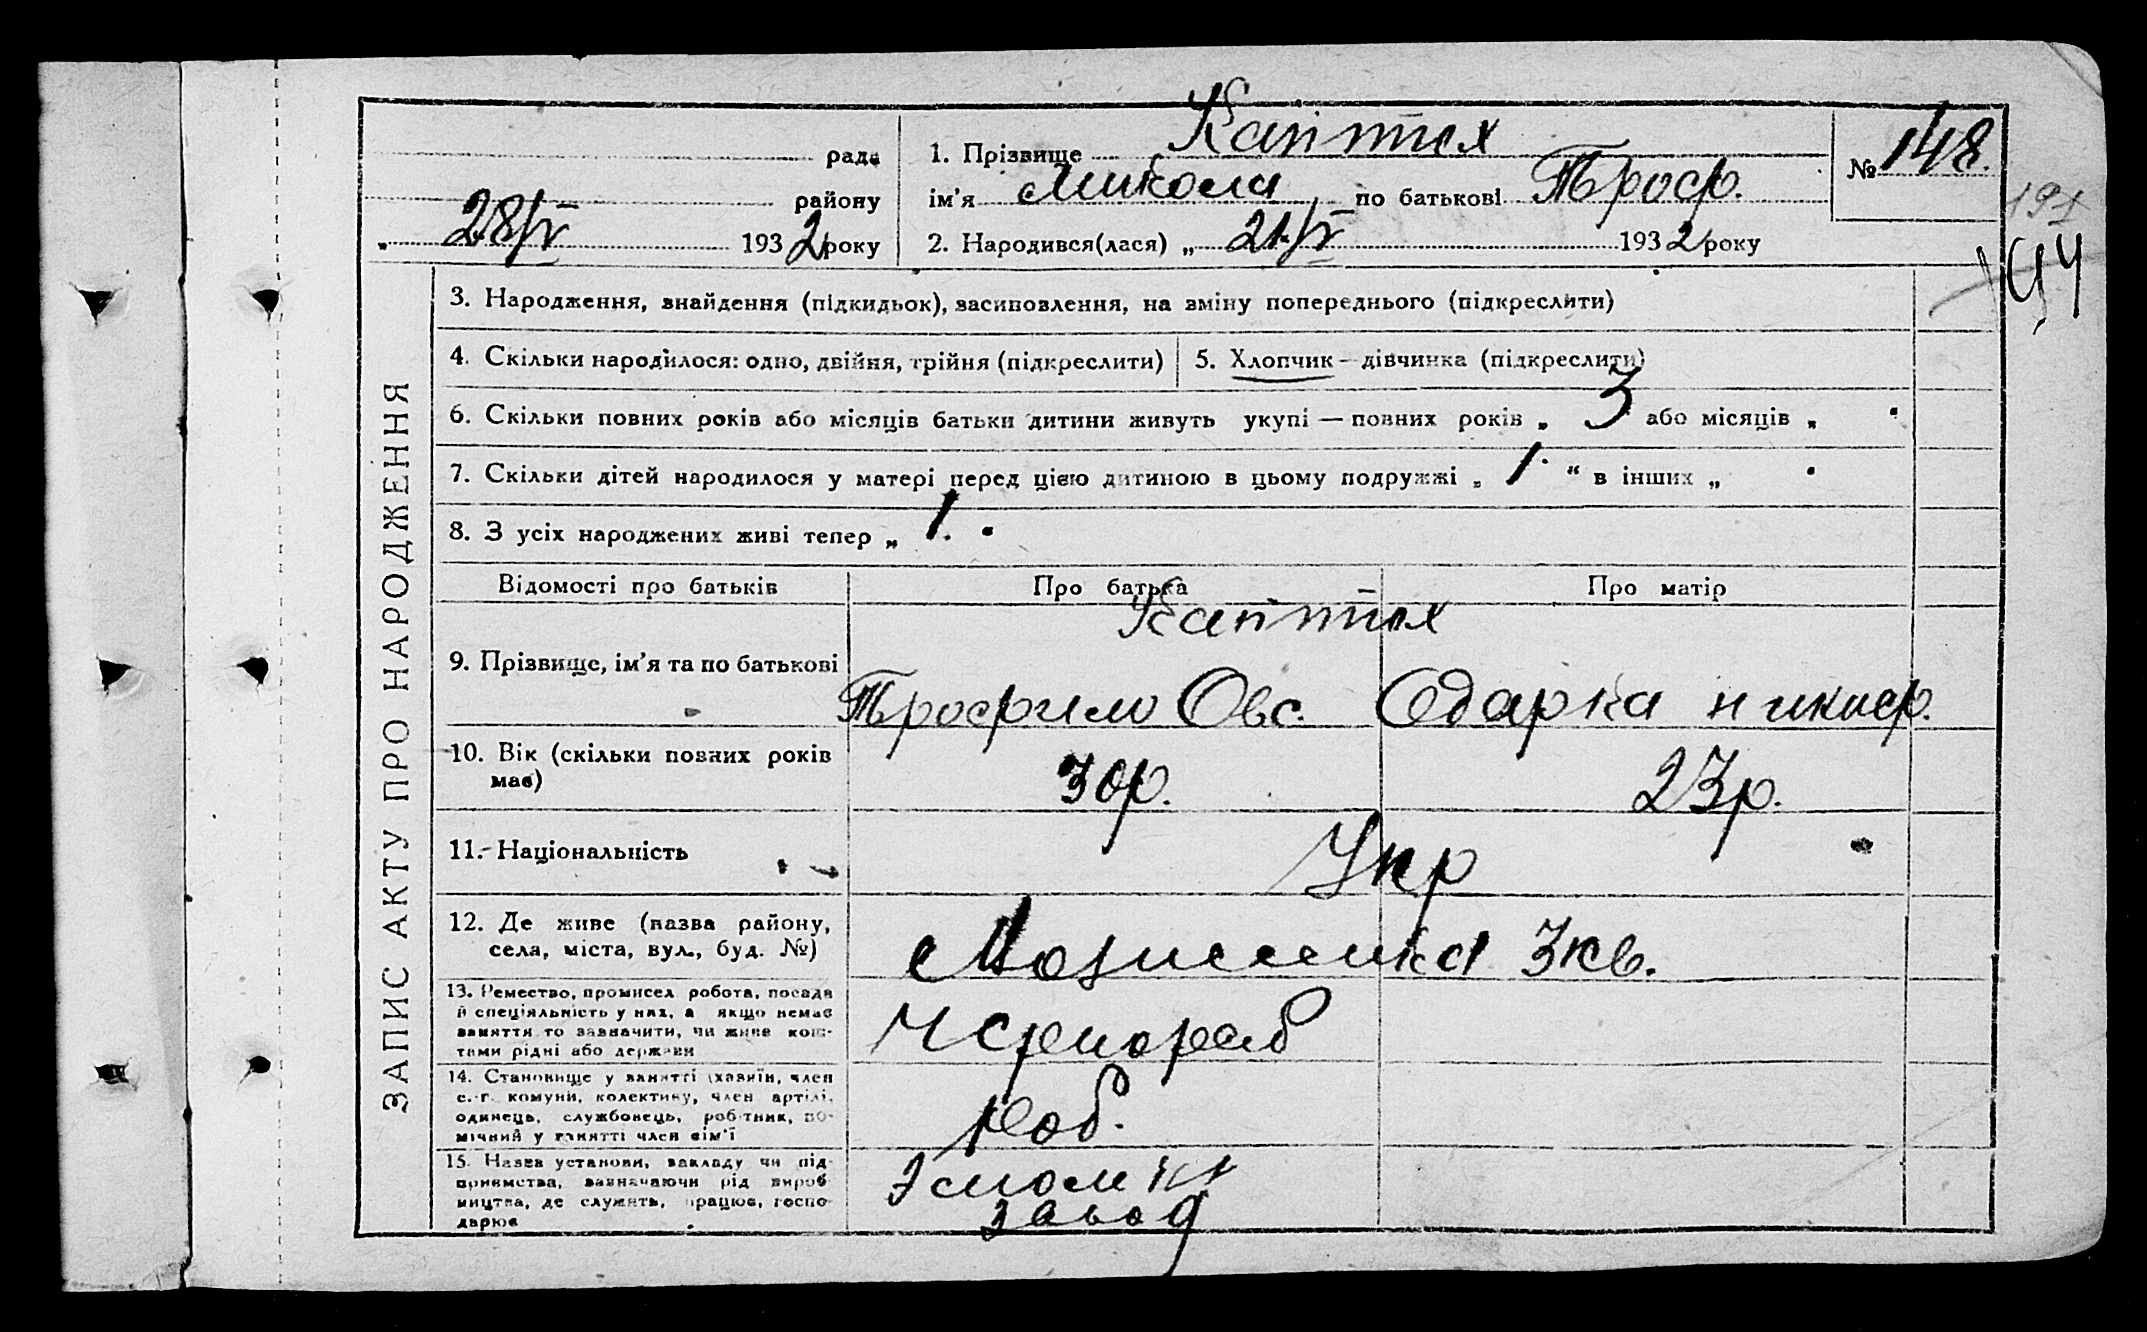 Каптюх
рада
1. Прізвище
№ 148.
району
ім'я Микола по батькові Троф.
191
„ 28/IV 1932 року
2. Народився(лася) „ 21/IV 1932 року
144
ЗАПИС АКТУ ПРО НАРОДЖЕННЯ
3. Народження, знайдення (підкидьок), засиновлення, на зміну попереднього (підкреслити)
4. Скільки народилося: одно, двійня, трійня (підкреслити)
5. Хлопчик — дівчинка (підкреслити)
6. Скільки повних років або місяців батьки дитини живуть укупі — повних років „ 3 або місяців „
7. Скільки дітей народилося у матері перед цією дитиною в цьому подружжі „ 1. “ в інших „
8. З усіх народжених живі тепер „ 1.
Відомості про батьків
Про батька
Про матір
Каптюх
9. Прізвище, ім'я та по батькові
Трофимо Овс. Одарка никиф.
10. Вік (скільки повних років
має)
30р.
23р.
11. Національність
Укр
12. Де живе (назва району,
села, міста, вул., буд. №)
3 кв.
13. Ремество, промисел робота, посада
й спеціяльність у них, а якщо немає
заняття то зазначити, чи живе кош-
тами рідні або держави
Чернораб
14. Становище у занятті (хазяїн, член
с.-г. комуни, колективу, член артілі,
одинець, службовець, робітник, по-
мічний у занятті член сім'ї
Роб.
15. Назва установи, закладу чи під-
приємства, зазначаючи рід вироб-
ництва, де служить, працює, госпо-
дарює
завод